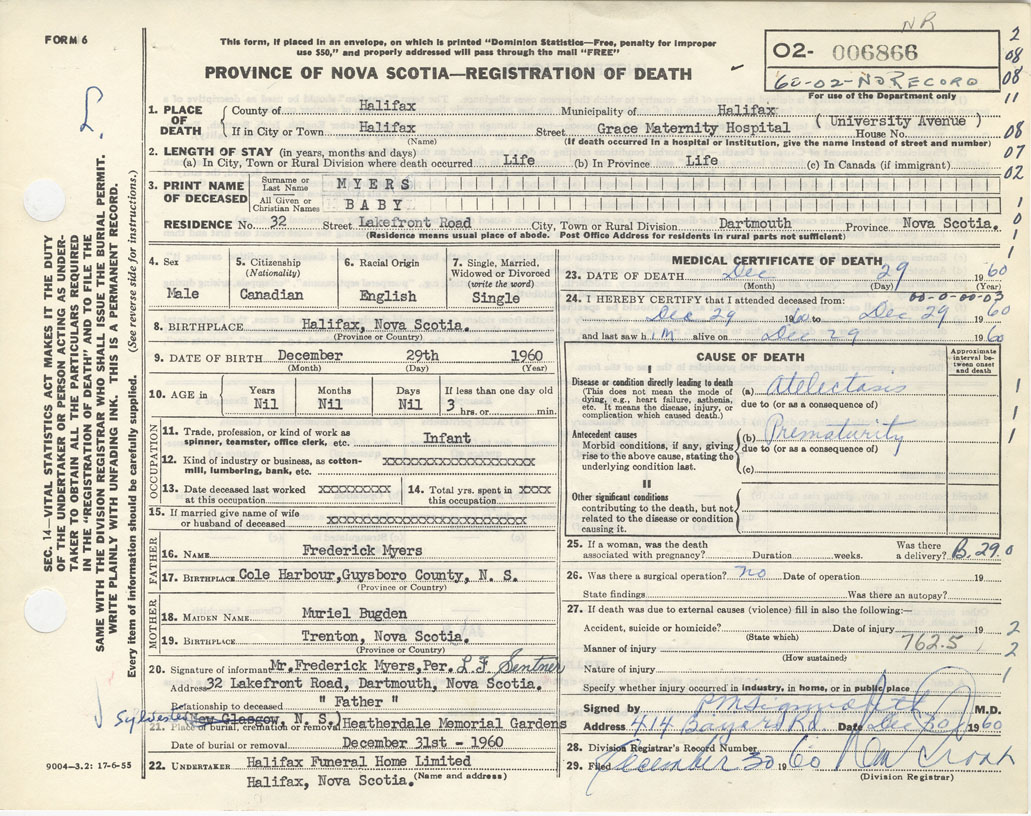 NR
FORM 6
This form, if placed in an envelope, on which is printed "Dominion Statistics—Free, penalty for improper
use $50," and properly addressed will pass through the mail "FREE"
PROVINCE OF NOVA SCOTIA—REGISTRATION OF DEATH
02- 006866
60-02-NO RECORD
For use of the Department only
2
08
08
11
08
07
02
1. PLACE OF DEATH { County of Halifax Municipality of Halifax
If in City or Town Halifax Street Grace Maternity Hospital ( University Avenue ) House No.
(Name) (If death occurred in a hospital or institution, give the name instead of street and number)
2. LENGTH OF STAY (in years, months and days)
(a) In City, Town or Rural Division where death occurred Life (b) In Province Life (c) In Canada (if immigrant)
3. PRINT NAME OF DECEASED
Surname or Last Name MYERS
All Given or Christian Names BABY
RESIDENCE No. 32 Street Lakefront Road City, Town or Rural Division Dartmouth Province Nova Scotia.
(Residence means usual place of abode. Post Office Address for residents in rural parts not sufficient)
4. Sex
Male
5. Citizenship (Nationality)
Canadian
6. Racial Origin
English
7. Single, Married, Widowed or Divorced (write the word)
Single
8. BIRTHPLACE Halifax, Nova Scotia.
(Province or Country)
9. DATE OF BIRTH December 29th 1960
(Month) (Day) (Year)
10. AGE in Years Nil Months Nil Days Nil If less than one day old 3 hrs. or min.
OCCUPATION
11. Trade, profession, or kind of work as spinner, teamster, office clerk, etc. Infant
12. Kind of industry or business, as cotton-mill, lumbering, bank, etc. xxxxxxxxxxxxxxxxxxxxxxx
13. Date deceased last worked at this occupation xxxxxxxxx 14. Total yrs. spent in this occupation xxxx
15. If married give name of wife or husband of deceased xxxxxxxxxxxxxxxxxxxxxxxxxxxxx
FATHER
16. NAME Frederick Myers
17. BIRTHPLACE Cole Harbour,Guysboro County, N. S.
(Province or Country)
MOTHER
18. MAIDEN NAME Muriel Bugden
19. BIRTHPLACE Trenton, Nova Scotia.
(Province or Country)
20. Signature of informant Mr.Frederick Myers,Per. L.F. Sentner
Address 32 Lakefront Road, Dartmouth, Nova Scotia.
Relationship to deceased " Father "
Sylvester (New Glasgow, N. S.) Heatherdale Memorial Gardens
21. Place of burial, cremation or removal
Date of burial or removal December 31st - 1960
22. UNDERTAKER Halifax Funeral Home Limited
Halifax, Nova Scotia. (Name and address)
MEDICAL CERTIFICATE OF DEATH
23. DATE OF DEATH Dec 29 1960
(Month) (Day) (Year)
24. I HEREBY CERTIFY that I attended deceased from: 00-0-00-03
Dec 29 1960 to Dec 29 1960
and last saw him alive on Dec 29 1960
CAUSE OF DEATH
Approximate interval between onset and death
I
Disease or condition directly leading to death (a) atelectasis
(This does not mean the mode of dying, e.g., heart failure, asthenia, etc. It means the disease, injury, or complication which caused death.)
due to (or as a consequence of)
Antecedent causes (b) Prematurity
Morbid conditions, if any, giving rise to the above cause, stating the underlying condition last.
due to (or as a consequence of)
(c)
II
Other significant conditions
contributing to the death, but not related to the disease or condition causing it.
25. If a woman, was the death associated with pregnancy? Duration weeks. Was there a delivery? B.29.0
26. Was there a surgical operation? no Date of operation 19
State findings Was there an autopsy?
27. If death was due to external causes (violence) fill in also the following:—
Accident, suicide or homicide? Date of injury 19
(State which)
Manner of injury 762.5
(How sustained)
Nature of injury
Specify whether injury occurred in industry, in home, or in public place
Signed by M.D.
Address 414 Bayers Rd. Date Dec 30 1960
28. Division Registrar's Record Number
29. Filed December 30 1960
(Division Registrar)
SEC. 14—VITAL STATISTICS ACT MAKES IT THE DUTY
OF THE UNDERTAKER OR PERSON ACTING AS UNDER-
TAKER TO OBTAIN ALL THE PARTICULARS REQUIRED
IN THE "REGISTRATION OF DEATH" AND TO FILE THE
SAME WITH THE DIVISION REGISTRAR WHO SHALL ISSUE THE BURIAL PERMIT.
WRITE PLAINLY WITH UNFADING INK. THIS IS A PERMANENT RECORD.
Every item of information should be carefully supplied. (See reverse side for instructions.)
9004—3.2: 17-6-55